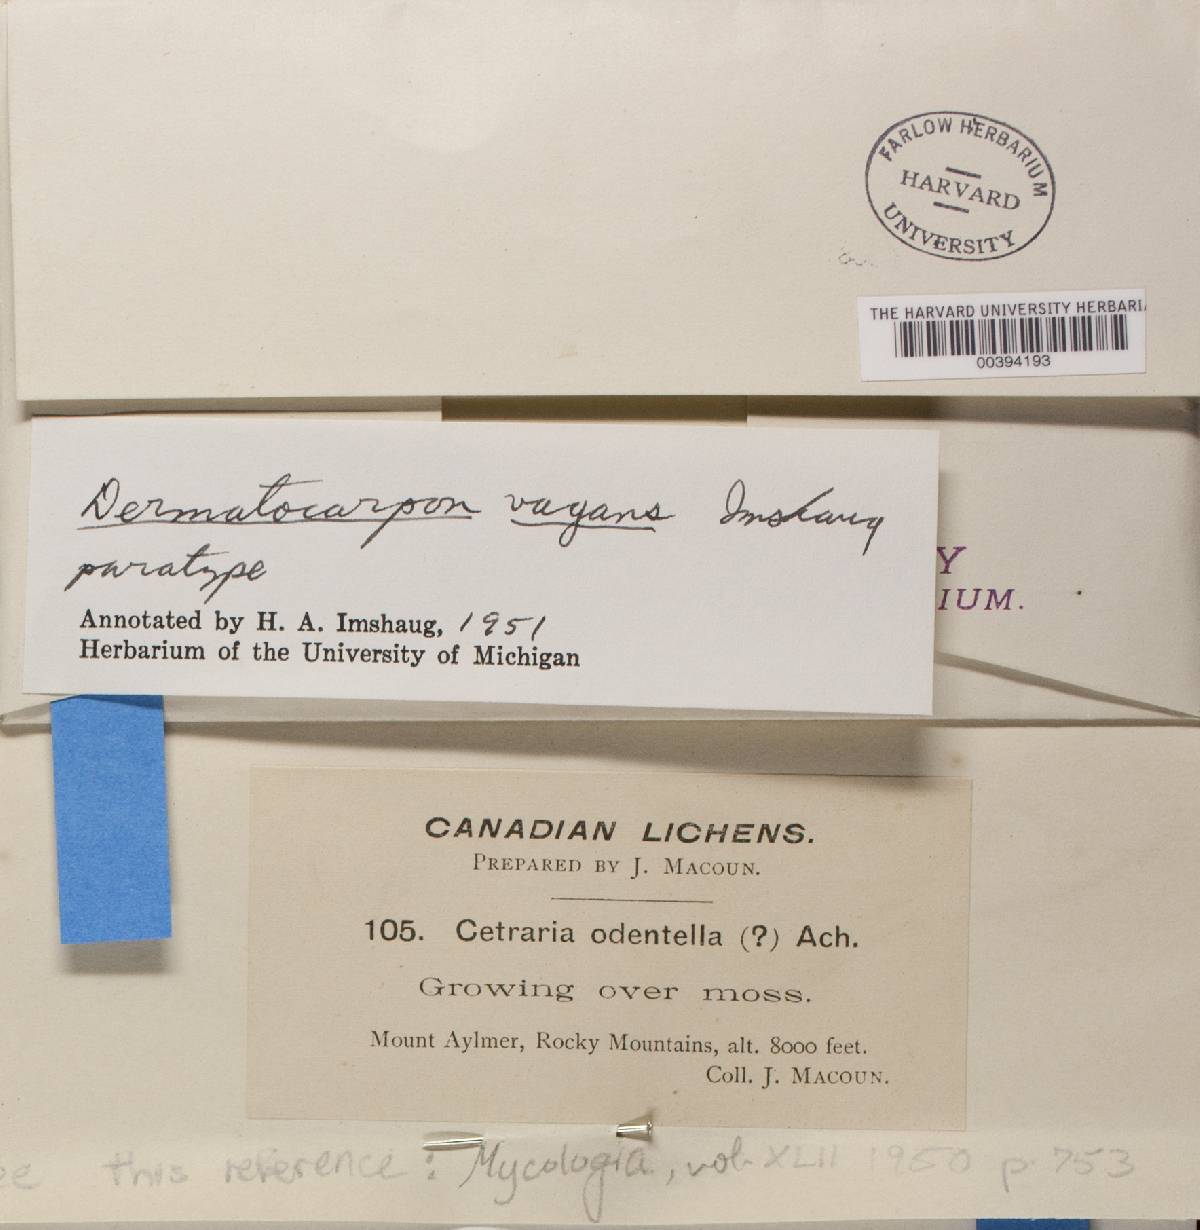 FARLOW HERBARIUM
HARVARD
UNIVERSITY
THE HARVARD UNIVERSITY HERBARI
00394193
Dermatocarpon vagans Imshaug
paratype
Annotated by H. A. Imshaug, 1951
Herbarium of the University of Michigan
Y
IUM.
CANADIAN LICHENS.
PREPARED BY J. MACOUN.
105. Cetraria odentella (?) Ach.
Growing over moss.
Mount Aylmer, Rocky Mountains, alt. 8000 feet.
Coll. J. MACOUN.
this reference: Mycologia, vol. XLII 1950 p. 753